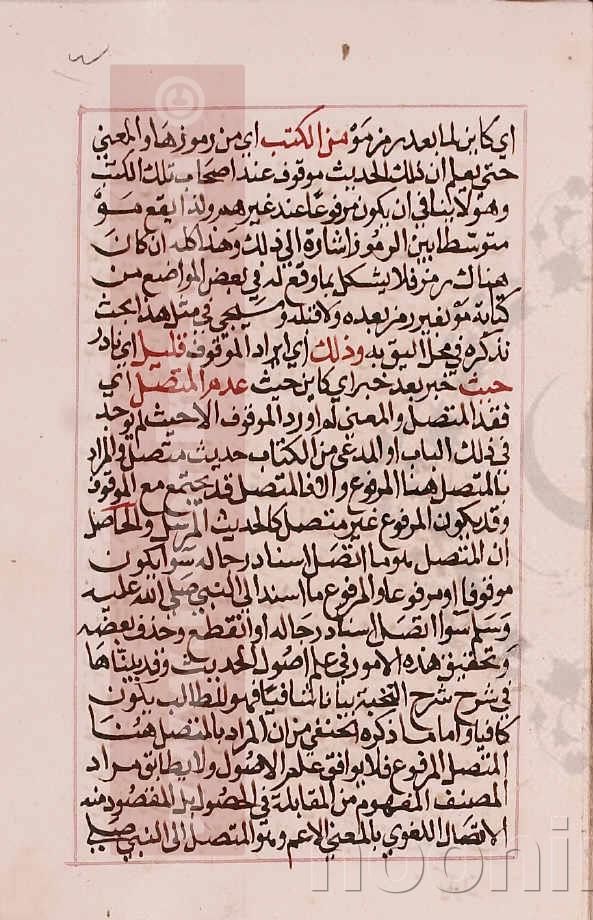 اي كاين لما بعد رمز مَوْ من الكتب اي من رموزها والمعني
حتي يعلم ان ذلك الحديث موقوف عند اصحاب تلك الكتب
وهو لا ينافي ان يكون مرفوعًا عند غيرهم ولذا يقع مَوْ
متوسطا بين الرموز اشارة الي ذلك وهذا كله ان كان
هناك رمز فلا يشكل بما وقع له في بعض المواضع من
كتابة مَوْ لغير رمز بعده ولا قبله وسيجي في مثل هذا بحث
نذكره في محل اليق به وذلك اي ايراد الموقوف قليل اي نادر
حيث خبر بعد خبر اي كاين حيث عدم المتصل اي
فقد المتصل والمعني له اورد الموقوف الا حيث لم يوجد
في ذلك الباب او المدعي من الكتاب حديث متصل والمراد
بالمتصل هنا المرفوع والا فالمتصل قد يجتمع مع الموقوف
وقد يكون المرفوع غير متصل كالحديث المرسل والحاصل
ان المتصل هو ما اتصل اسناد رجاله سوا يكون
موقوفا او مرفوعا والمرفوع ما اسند الي النبي صلي الله عليه
وسلم سوا اتصل اسناد رجاله او انقطع وحذف بعضه
وتحقيق هذه الامور في علم اصول الحديث وقد بيناها
في شرح شرح النخبة بيانا شافيًا فهو للمطالب يكون
كافيا واما ما ذكره الحنفي من ان المراد بالمتصل هنا
المتصل المرفوع فلا يوافق علم الاصول ولا يطابق مراد
المصنف المفهوم من المقابلة في الحصول بل المقصود منه
الاتصال اللغوي بالمعني الاعم وهو المتصل الي النبي صلي
nooni